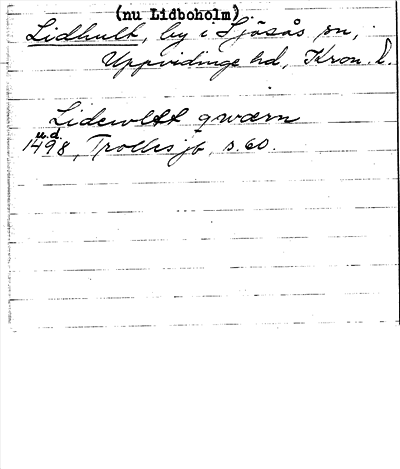 (nu Lidboholm)
Lidhult, by i Sjösås sn,
Uppvidinge hd, Kron. l.
Lidewltt qwærn
u.d.
1498, Trolles jb, s. 60.